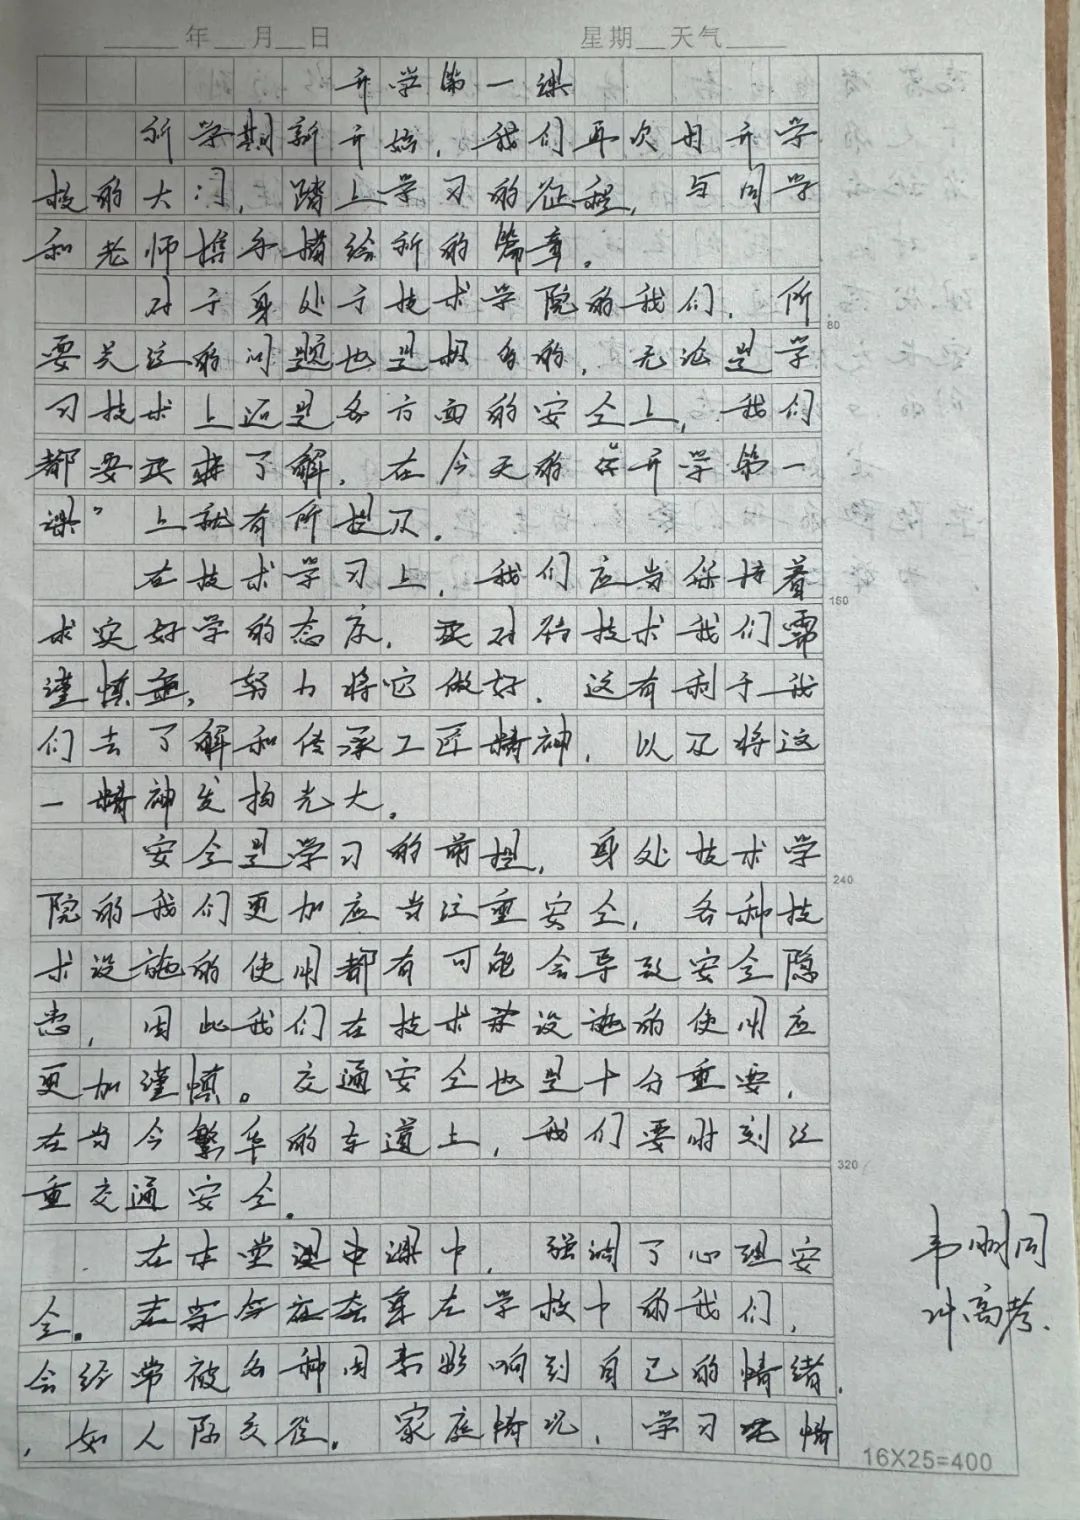 年 月 日 星期 天气
开学第一课
新学期新开始，我们再次打开学
校的大门，踏上学习的征程，与同学
和老师携手描绘新的篇章。
对于身处于技术学院的我们，所
要关注的问题也是极多的，无论是学
习技术上还是各方面的安全上，我们
都要去了解，在今天的“开学第一
课”上就有所提及。
在技术学习上，我们应当保持着
求实好学的态度，对待技术我们需
谨慎，努力将它做好，这有利于我
们去了解和传承工匠精神，以及将这
一精神发扬光大。
安全是学习的前提，身处技术学
院的我们更加应当注重安全，各种技
术设施的使用都有可能会导致安全隐
患，因此我们在技术设施的使用应
更加谨慎。交通安全也是十分重要，
在当今繁华的车道上，我们要时刻注
重交通安全。
在本堂课中，强调了心理安
全。在学校中的我们，
会经常被各种因素影响到自己的情绪，
，如人际交往。家庭情况，学习情
80
160
240
320
16X25=400
高考